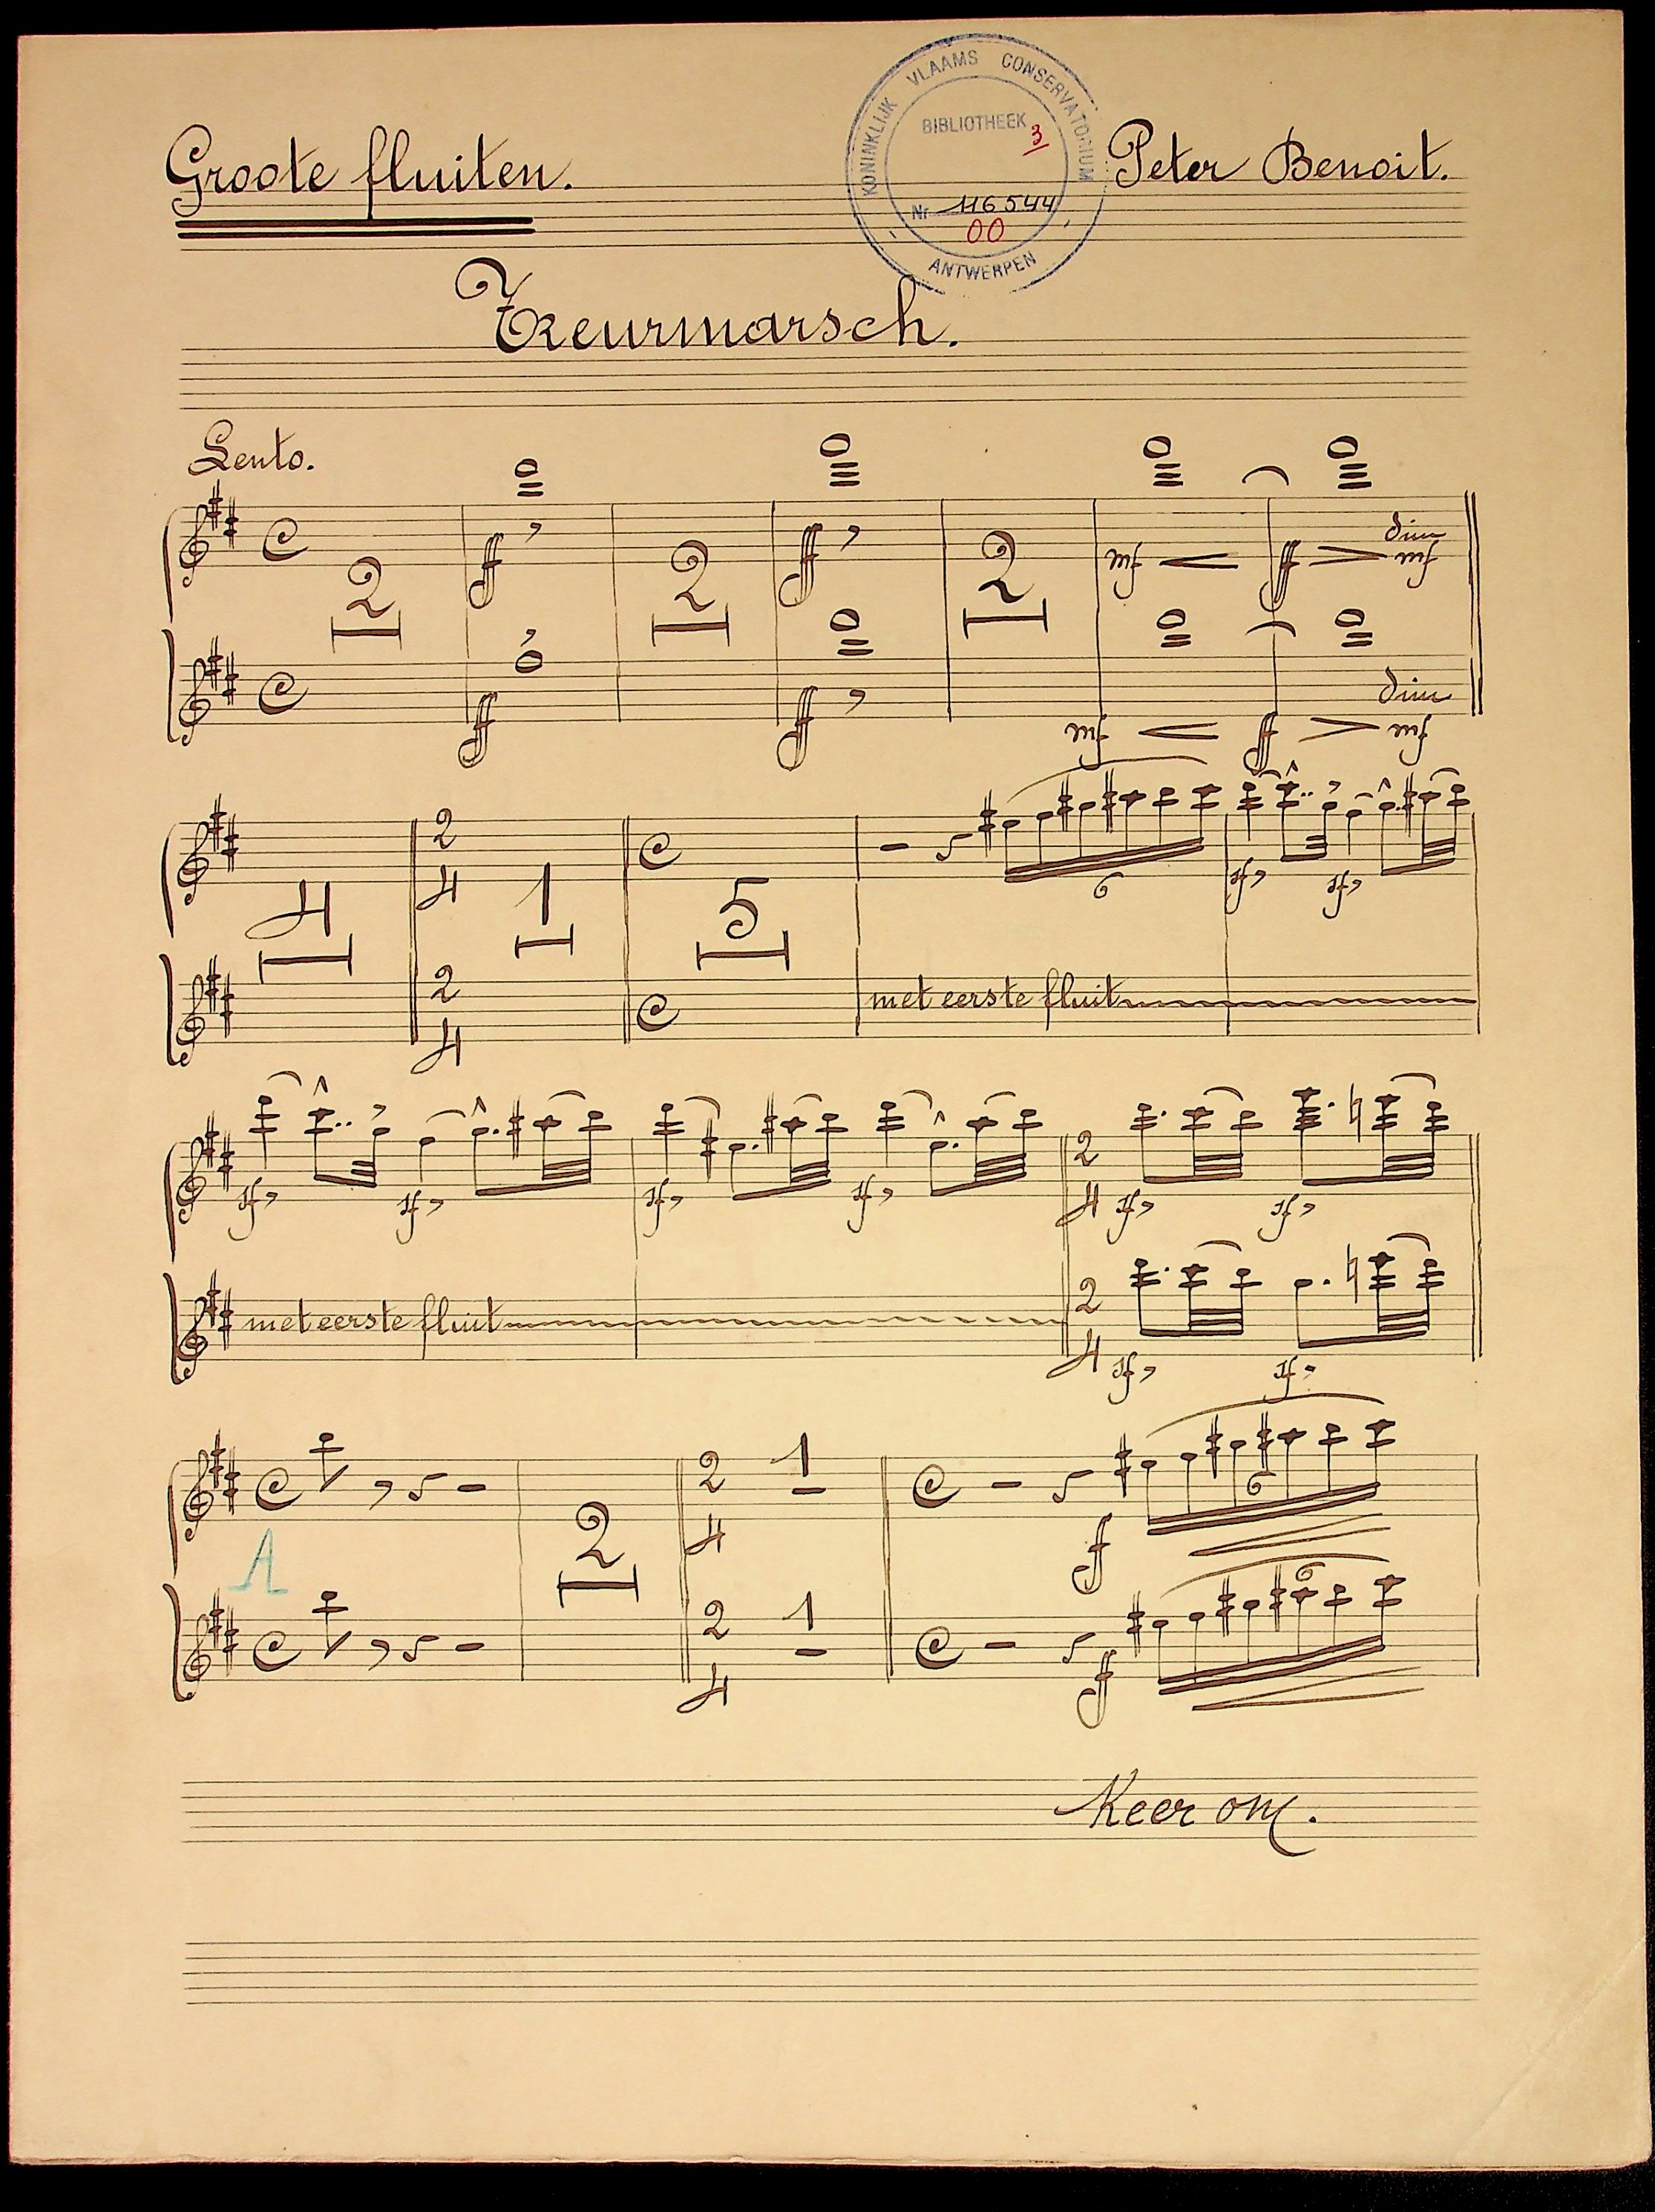 KONINKLIJK VLAAMS CONSERVATORIUM
BIBLIOTHEEK
3
Nr 116544
00
ANTWERPEN
Groote fluiten.
Peter Benoit.
Treurmarsch.
Lento.
2 ff 2 ff 2 mf ff dim mf
ff ff mf ff dim mf
4 2 4 1 5 6 sf sf
2 4 met eerste fluit
sf sf sf sf 2 4 sf sf
met eerste fluit 2 4 sf sf
2 2 4 1 f 6
A
2 4 1 f 6
Keer om.